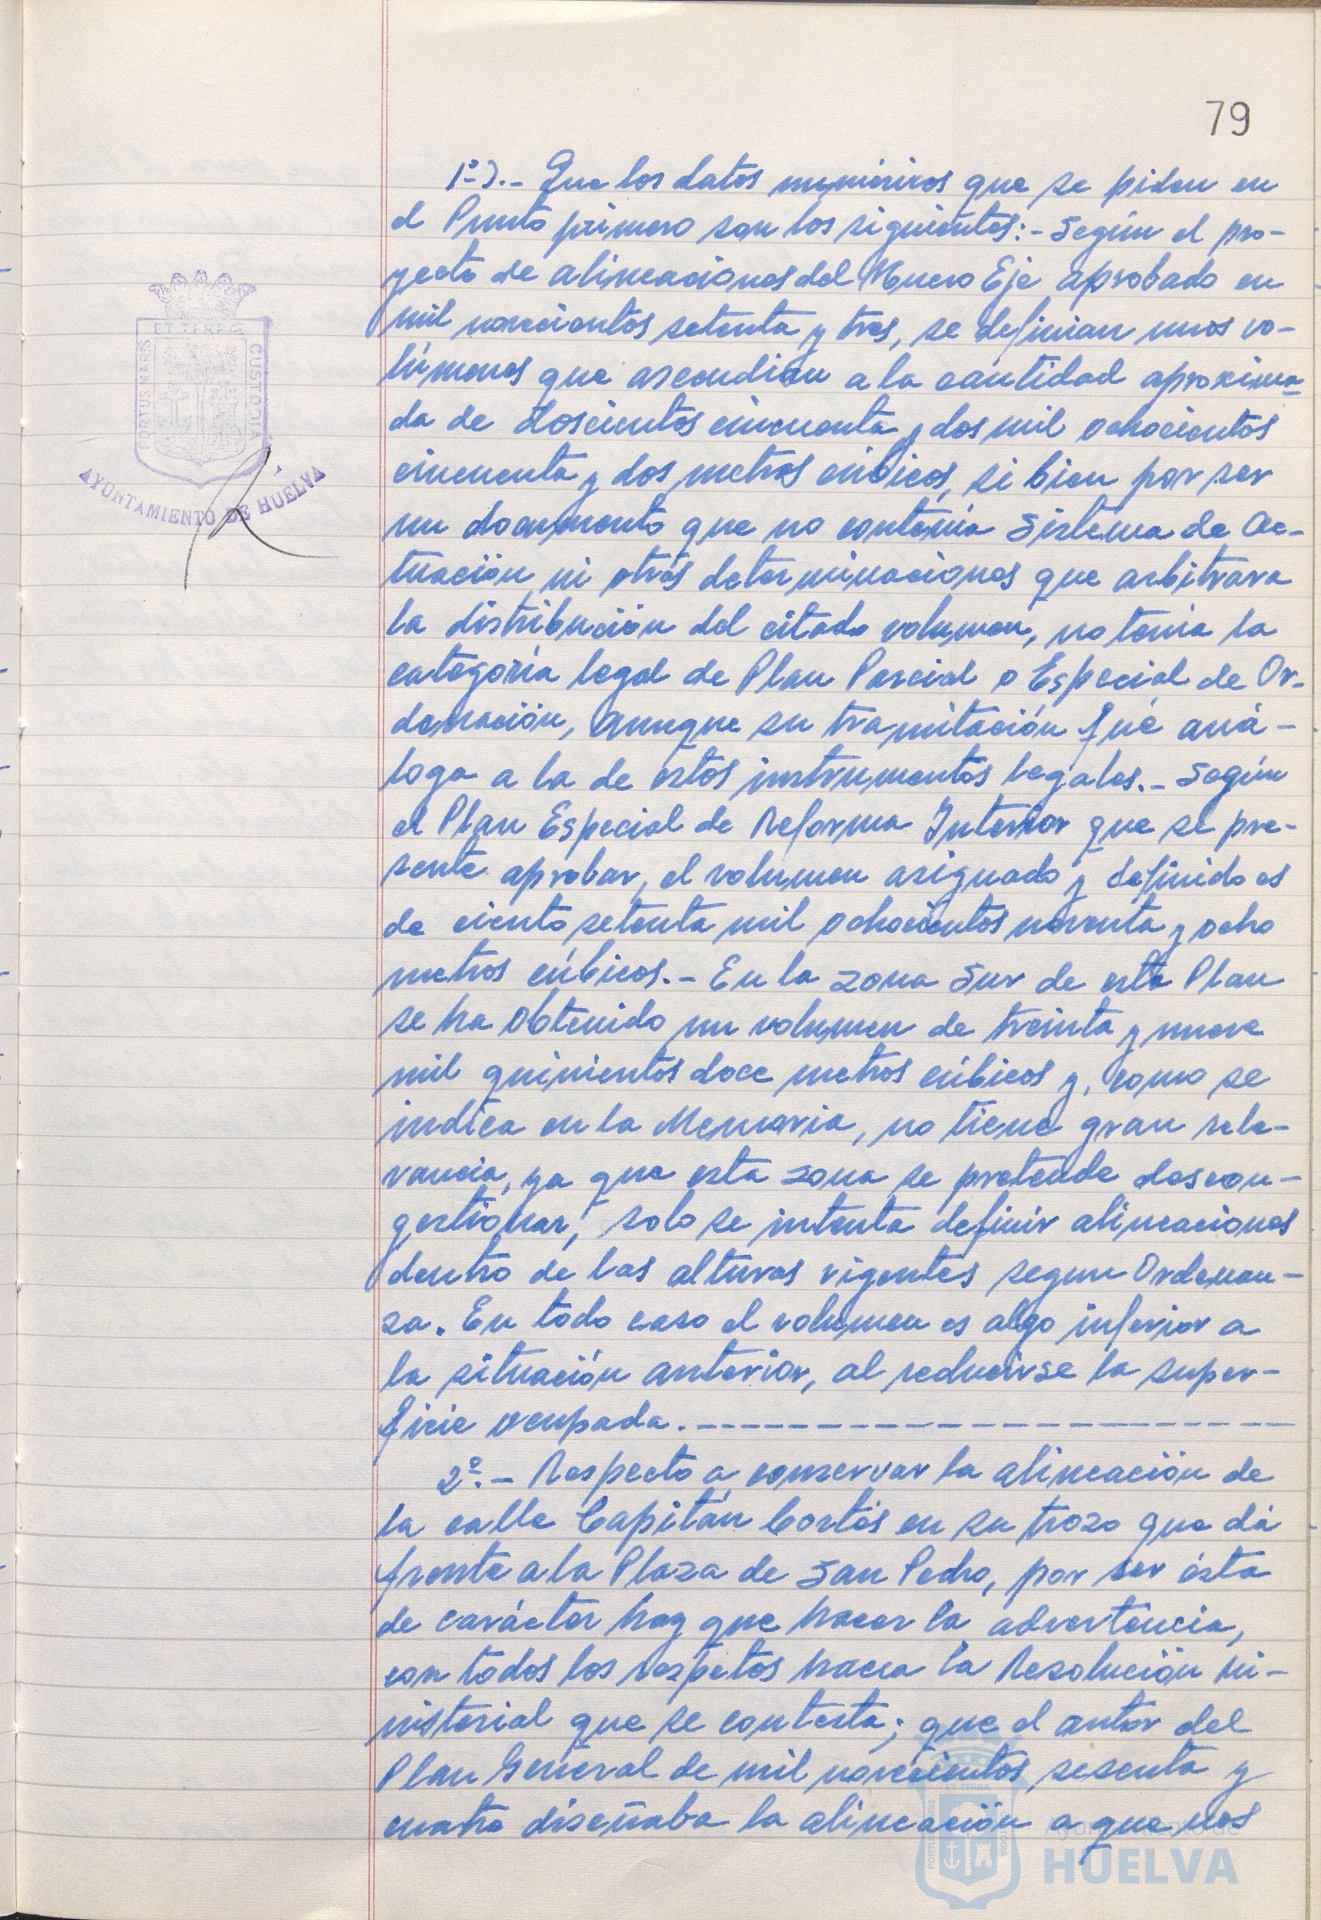 79
1º).- Que los datos numéricos que se piden en
el Punto primero son los siguientes:- Según el pro-
yecto de alineaciones del Nuevo Eje aprobado en
mil novecientos setenta y tres, se definian unos vo-
lúmenes que ascendian a la cantidad aproxima-
da de doscientos cincuenta y dos mil ochocientos
cincuenta y dos metros cúbicos, si bien por ser
un documento que no contenía Sistema de Ac-
tuación ni otras determinaciones que arbitrara
la distribución del citado volumen, no tenía la
categoría legal de Plan Parcial o Especial de Or-
denación, aunque su tramitación fué aná-
loga a la de estos instrumentos legales.- Según
el Plan Especial de Reforma Interior que se pre-
sente aprobar, el volumen asignado y definido es
de ciento setenta mil ochocientos noventa y ocho
metros cúbicos.- En la zona Sur de este Plan
se ha obtenido un volumen de treinta y nueve
mil quinientos doce metros cúbicos y, como se
indica en la Memoria, no tiene gran rele-
vancia, ya que esta zona se pretende descon-
gestionar, solo se intenta definir alineaciones
dentro de las alturas vigentes segun Ordenan-
za. En todo caso el volumen es algo inferior a
la situación anterior, al reducirse la super-
ficie ocupada.
2º.- Respecto a conservar la alineación de
la calle Capitán Cortés en su trozo que dá
frente a la Plaza de San Pedro, por ser ésta
de carácter hay que hacer la advertencia,
con todos los respetos hacia la Resolución Mi-
nisterial que se contesta; que el autor del
Plan General de mil novecientos sesenta y
cuatro diseñaba la alineación a que nos
PORTUS MARIS
ET TERRÆ
CUSTODIA
AYUNTAMIENTO DE HUELVA
Ayuntamiento de
HUELVA